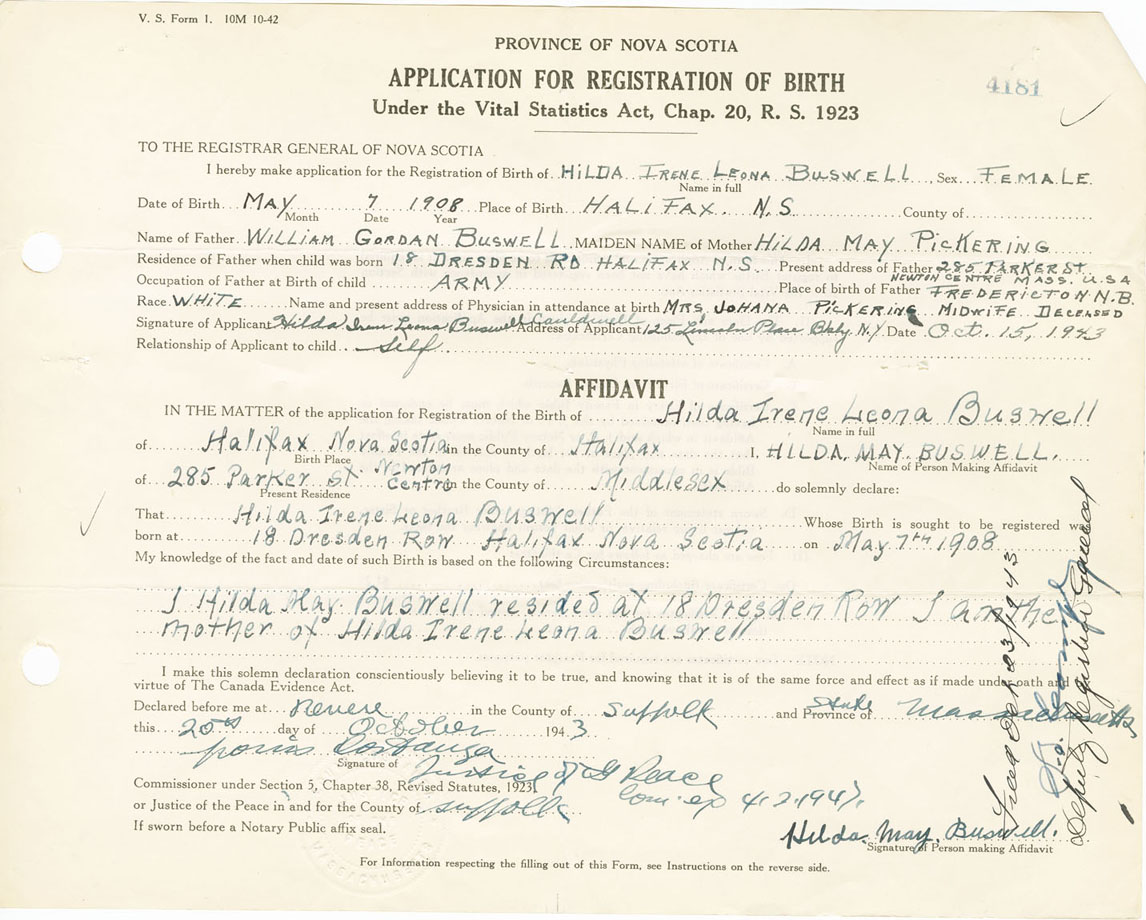 V. S. Form 1. 10M 10-42
PROVINCE OF NOVA SCOTIA
APPLICATION FOR REGISTRATION OF BIRTH
4181
Under the Vital Statistics Act, Chap. 20, R. S. 1923
TO THE REGISTRAR GENERAL OF NOVA SCOTIA
I hereby make application for the Registration of Birth of HILDA IRENE LEONA BUSWELL, Sex FEMALE
Name in full
Date of Birth MAY 7 1908 Place of Birth HALIFAX. N.S County of
Month Date Year
Name of Father WILLIAM GORDAN BUSWELL MAIDEN NAME of Mother HILDA MAY PICKERING
Residence of Father when child was born 18 DRESDEN RD HALIFAX N.S. Present address of Father 285 PARKER ST
NEWTON CENTRE MASS. U.S.A
Occupation of Father at Birth of child ARMY Place of birth of Father FREDERICTON N.B.
Race WHITE Name and present address of Physician in attendance at birth MRS JOHANA PICKERING MIDWIFE DECEASED
Signature of Applicant Hilda Irene Leona Buswell Cauldwell Address of Applicant 125 Lincoln Place Bkly N.Y. Date Oct. 15, 1943
Relationship of Applicant to child Self
AFFIDAVIT
IN THE MATTER of the application for Registration of the Birth of Hilda Irene Leona Buswell
Name in full
of Halifax Nova Scotia in the County of Halifax I, HILDA MAY BUSWELL.
Birth Place Name of Person Making Affidavit
of 285 Parker St. Newton Centre in the County of Middlesex do solemnly declare:
Present Residence
That Hilda Irene Leona Buswell Whose Birth is sought to be registered was
born at 18 Dresden Row Halifax Nova Scotia on May 7th 1908
My knowledge of the fact and date of such Birth is based on the following Circumstances:
I Hilda May Buswell resided at 18 Dresden Row I am the
mother of Hilda Irene Leona Buswell
I make this solemn declaration conscientiously believing it to be true, and knowing that it is of the same force and effect as if made under oath and
virtue of The Canada Evidence Act.
Declared before me at Revere in the County of Suffolk and State Province of Massachusetts
this 20th day of October 1943
Signature of Justice of Peace
Commissioner under Section 5, Chapter 38, Revised Statutes, 1923,
Com. ex 4.2.1947.
or Justice of the Peace in and for the County of Suffolk
If sworn before a Notary Public affix seal.
Hilda. May. Buswell.
Signature of Person making Affidavit
For Information respecting the filling out of this Form, see Instructions on the reverse side.
Oct 23/1943
Deputy Registrar General